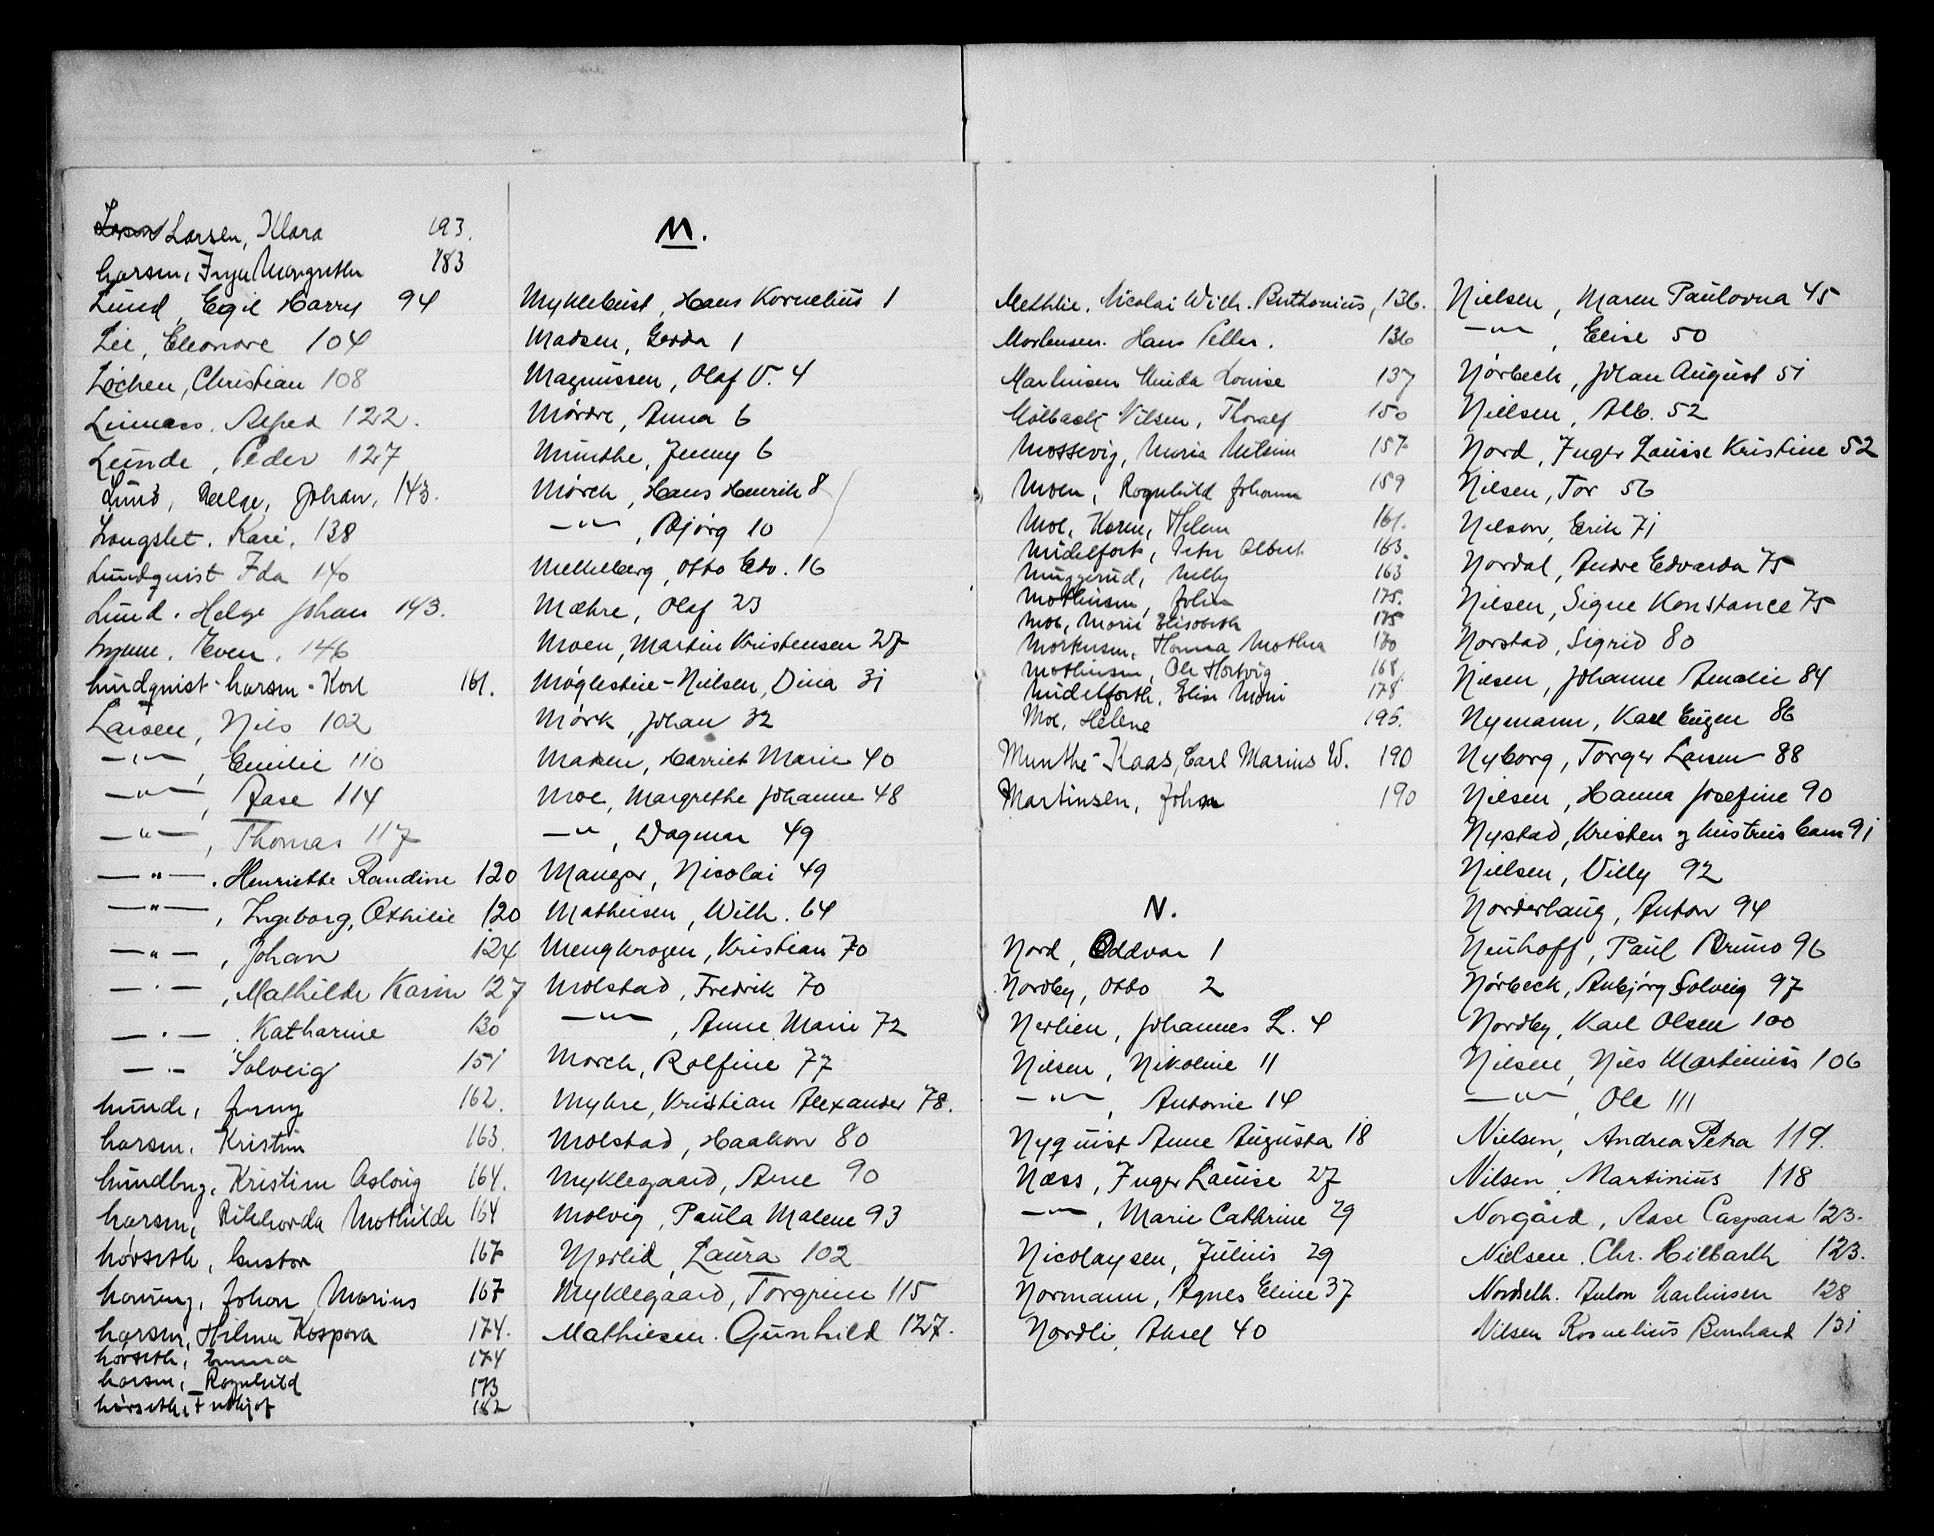 Larsen, Klara 193.
Larsen, Inga Margrethe 183
Lund, Egil Harry 94
Lie, Eleonore 104
Løchen, Christian 108
Alfred 122.
Lunde, Peder 127
Lund, Helge, Johan, 143.
Langslet. Kari, 138
Lundquist Ida 140
Lund. Helge Johan 143.
Even, 146
Lundquist-Larsen-Karl 161.
Larsen, Nils 102
—"—, Emilie 110
—"—, Aase 114
—"—, Thomas 117
—"—. Henriette Randine 120
—"—, Ingeborg, Othilie 120
—"—, Johan 124
—"—, Mathilde Karin 127
—"—. Katharine 130
—"— Solveig 151
Lunde, Jenny 162.
Larsen, Kristin 163.
Lundbng, Kristine Aslaug 164.
Larsen, Rikharda Mathilde 164
Lørseth, Gustav 167
Johan Marius 167
Larsen, Hilma Kaspara 174.
Lørseth, Emma 174
Larsen, Ragnhild 173
Lørseth, Fridtjof 182
M.
Myklebust, Hans Kornelius 1
Madsen, Gerda 1
Magnussen, Olaf V. 4
Mørdre, Anna 6
Munthe, Jenny 6
Mørch, Hans Henrik 8
—"—, Bjørg 10
Melleberg, Otto Edv. 16
Mæhre, Olaf 23
Moen, Martin Kristensen 27
Møglestue-Nielsen, Dina 31
Mørk, Johan 32
Madsen, Harriet Marie 40
Moe, Margrethe Johanne 48
—"—, Dagmar 49
Mangor, Nicolai 49
Mathisen, Wilh. 64
Mengkrogen, Kristian 70
Molstad, Fredrik 70
—"—, Anne Marie 72
Morch, Rolfine 77
Myhre, Kristian Alexander 78.
Molstad, Haakon 80
Myklegaard, Arne 90
Molvig, Paula Malene 93
Mjerlid, Laura 102
Myklegaard, Torgrim 115
Mathiesen. Gunhild 127.
Methlie, Nicolai Wilh. Berthonius, 136.
Mortensen. Hans Petter. 136
Martinsen Louise 137
Mølback Nilsen, Thoralf 150
Mossevig, Maria 157
Moen, Ragnhild Johanne 159
Moe, Karen, Helene 161.
Midelfart, Peter Albert 163.
Muggerud, Nelly 163
Mathisen, Johan 175.
Moe, Marie Elisabeth 175
Mortensen, Hanna Mathea 180
Mathisen, Ole Hartvig 168
Midelforth, Elise Marie 178
Moe, Helene 195.
Munthe-Kaas, Carl Marius W. 190
Martinsen, Johan 190
N.
Nord, Oddvar 1
Nordby, Otto 2
Nerlien, Johannes L. 4
Nilsen, Nikoline 11
—"—, Antonie 14
Nyquist Anne Augusta 18
Næss, Inger Louise 27
—"—, Marie Cathrine 29
Nicolaysen, Julius 29
Normann, Agnes Eline 37
Nordli, Aksel 40
Nielsen, Maren Paulovna 45
—"—, Elise 50
Nørbech, Johan August 51
Nielsen, Alb. 52
Nord, Inger Louise Kristine 52
Nilsen, Tor 56
Nelson, Erik 71
Nordal, Andre Edvarda 75
Nilsen, Signe Konstance 75
Norstad, Sigrid 80
Nilsen, Johanne Amalie 84
Nymann, Karl Eugen 86
Nyborg, Torger Larsen 88
Nilsen, Hanna Josefine 90
Nystad, Kristen og hustrus barn 91
Nielsen, Villy 92
Norderhaug, Anton 94
Neuhoff, Paul Bruno 96
Nørbech, Anbjørg Solveig 97
Nordby, Karl Olsen 100
Nilsen, Nils Martinius 106
—"—, Ole 111
Nielsen, Andrea Petra 119.
Nilsen, Martinius 118
Norgård, Aase Caspara 123.
Nielsen. Chr. Hilbarth 123.
Nordseth. Anton Martinsen 128
Nilsen Kornelius Bernhard 131